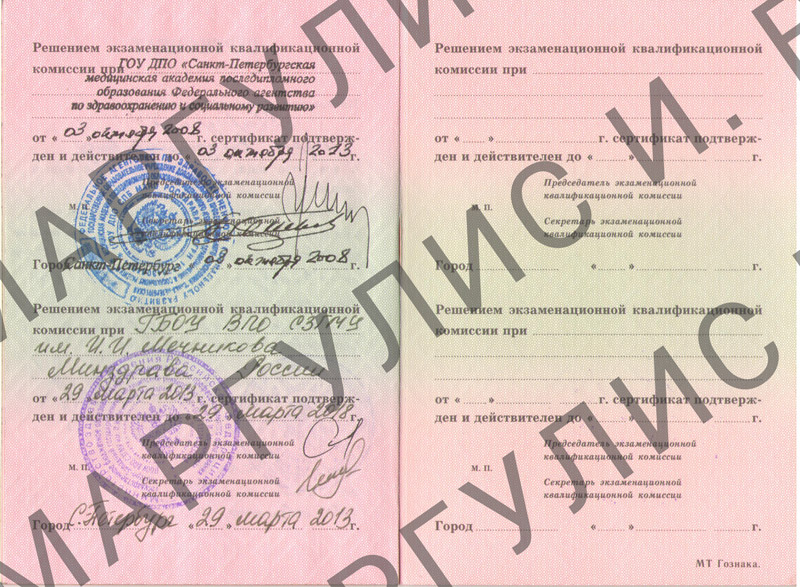 Решением экзаменационной квалификационной
комиссии при ГОУ ДПО «Санкт-Петербургская
медицинская академия последипломного
образования Федерального агентства
по здравоохранению и социальному развитию»
от « 03 октября 2008 г. сертификат подтверж-
ден и действителен до « 03 октября 2013 г.
Председатель экзаменационной
квалификационной комиссии
м. п.
Секретарь экзаменационной
квалификационной комиссии
Город Санкт-Петербург 03 октября 2008 г.
Решением экзаменационной квалификационной
комиссии при ГБОУ ВПО СЗГМУ
им. И.И. Мечникова
Минздрава России
от « 29 марта 2013 г. сертификат подтверж-
ден и действителен до « 29 » марта 2018 г.
Председатель экзаменационной
квалификационной комиссии
м. п.
Секретарь экзаменационной
квалификационной комиссии
Город С.Петербург « 29 » марта 2013 г.
Решением экзаменационной квалификационной
комиссии при
от « » г. сертификат подтверж-
ден и действителен до « » г.
Председатель экзаменационной
квалификационной комиссии
м. п.
Секретарь экзаменационной
квалификационной комиссии
Город « » г.
Решением экзаменационной квалификационной
комиссии при
от « » г. сертификат подтверж-
ден и действителен до « » г.
Председатель экзаменационной
квалификационной комиссии
м. п.
Секретарь экзаменационной
квалификационной комиссии
Город « » г.
МТ Гознака.
МАРГУЛИС И.
МАРГУЛИС